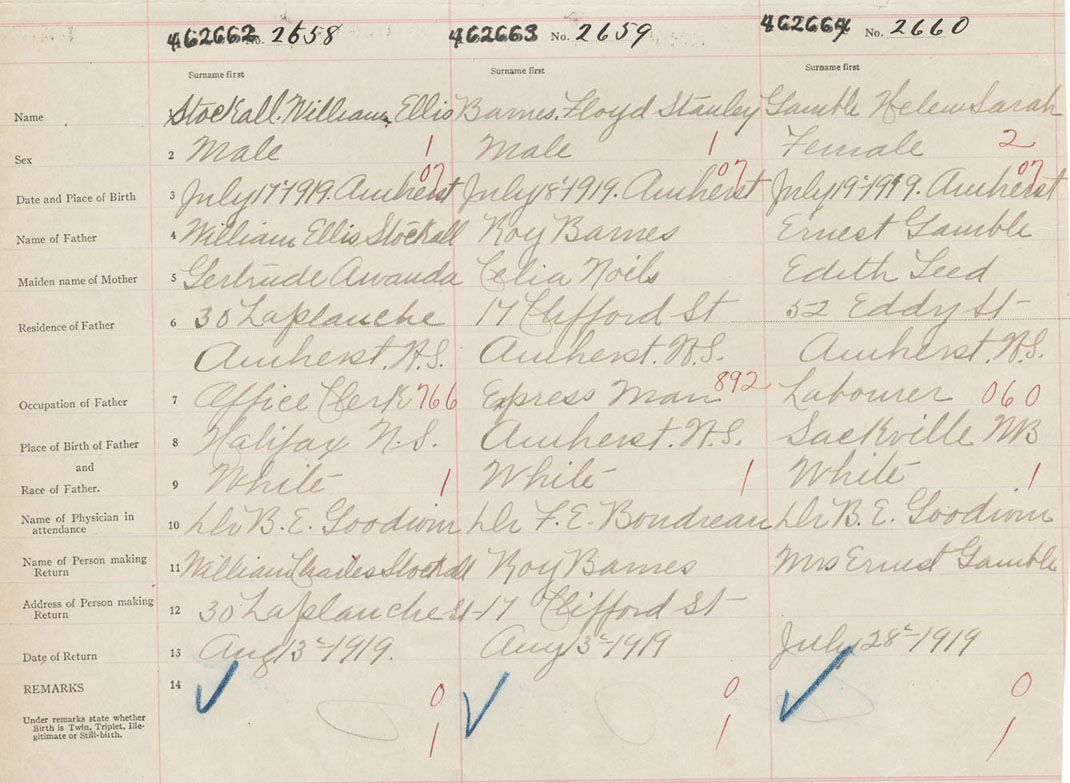 462662 No. 2658 462663 No. 2659 462664 No. 2660
Surname first Surname first Surname first
Name Stockall. William Ellis Barnes. Floyd Stanley Gamble Helen Sarah
Sex 2 Male 1 Male 1 Female 2
07 07 07
Date and Place of Birth 3 July 17th 1919. Amherst July 18th 1919. Amherst July 19th 1919. Amherst
Name of Father 4 William Ellis Stockall Roy Barnes Ernest Gamble
Maiden name of Mother 5 Gertrude Awanda Celia Noils Edith Teed
Residence of Father 6 30 Laplanche 17 Clifford St 52 Eddy St
Amherst. N.S. Amherst. N.S. Amherst. N.S.
Occupation of Father 7 Office Clerk 766 Express Man 892 Labourer 060
Place of Birth of Father 8 Halifax N.S. Amherst. N.S. Sackville NB
and
Race of Father. 9 White 1 White 1 White 1
Name of Physician in
attendance 10 Dr B. E. Goodwin Dr F. E. Boudreau Dr B. E. Goodwin
Name of Person making
Return 11 William Stockall Roy Barnes Mrs Ernest Gamble
Address of Person making
Return 12 30 Laplanche St- 17 Clifford St
Date of Return 13 Aug 13th 1919. Aug 13th 1919 July 28th 1919
REMARKS 14 0 0 0
Under remarks state whether
Birth is Twin, Triplet, Ille-
gitimate or Still-birth. 1 1 1